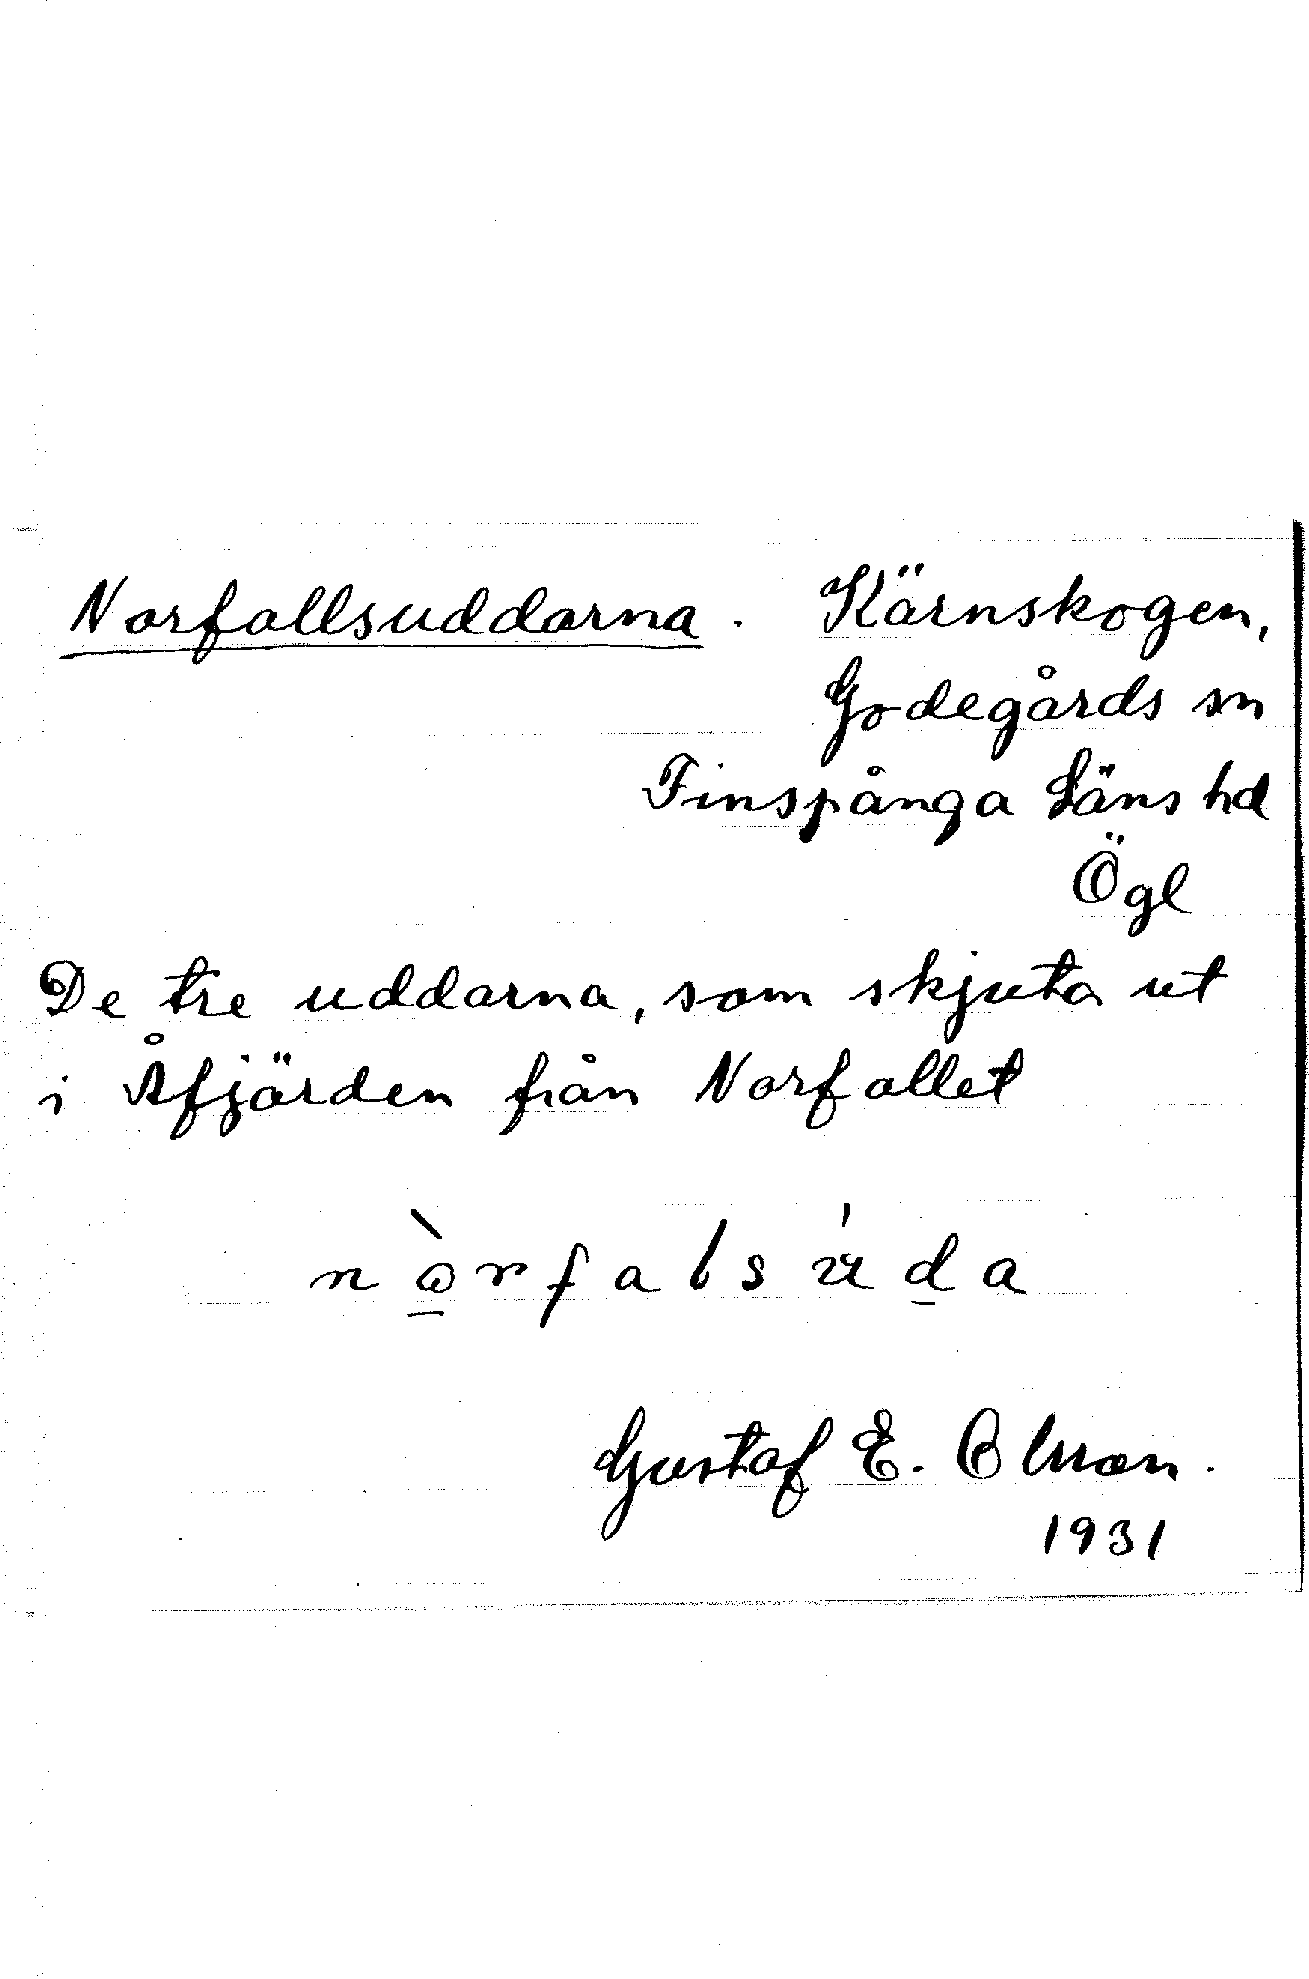 Norfallsuddarna. Kärnskogen,
Godegårds sn
Finspånga Läns hd
Ögl
De tre uddarna, som skjuta ut
i Åfjärden från Norfallet
nò̱rfalsúḏa
Gustaf E.
1931